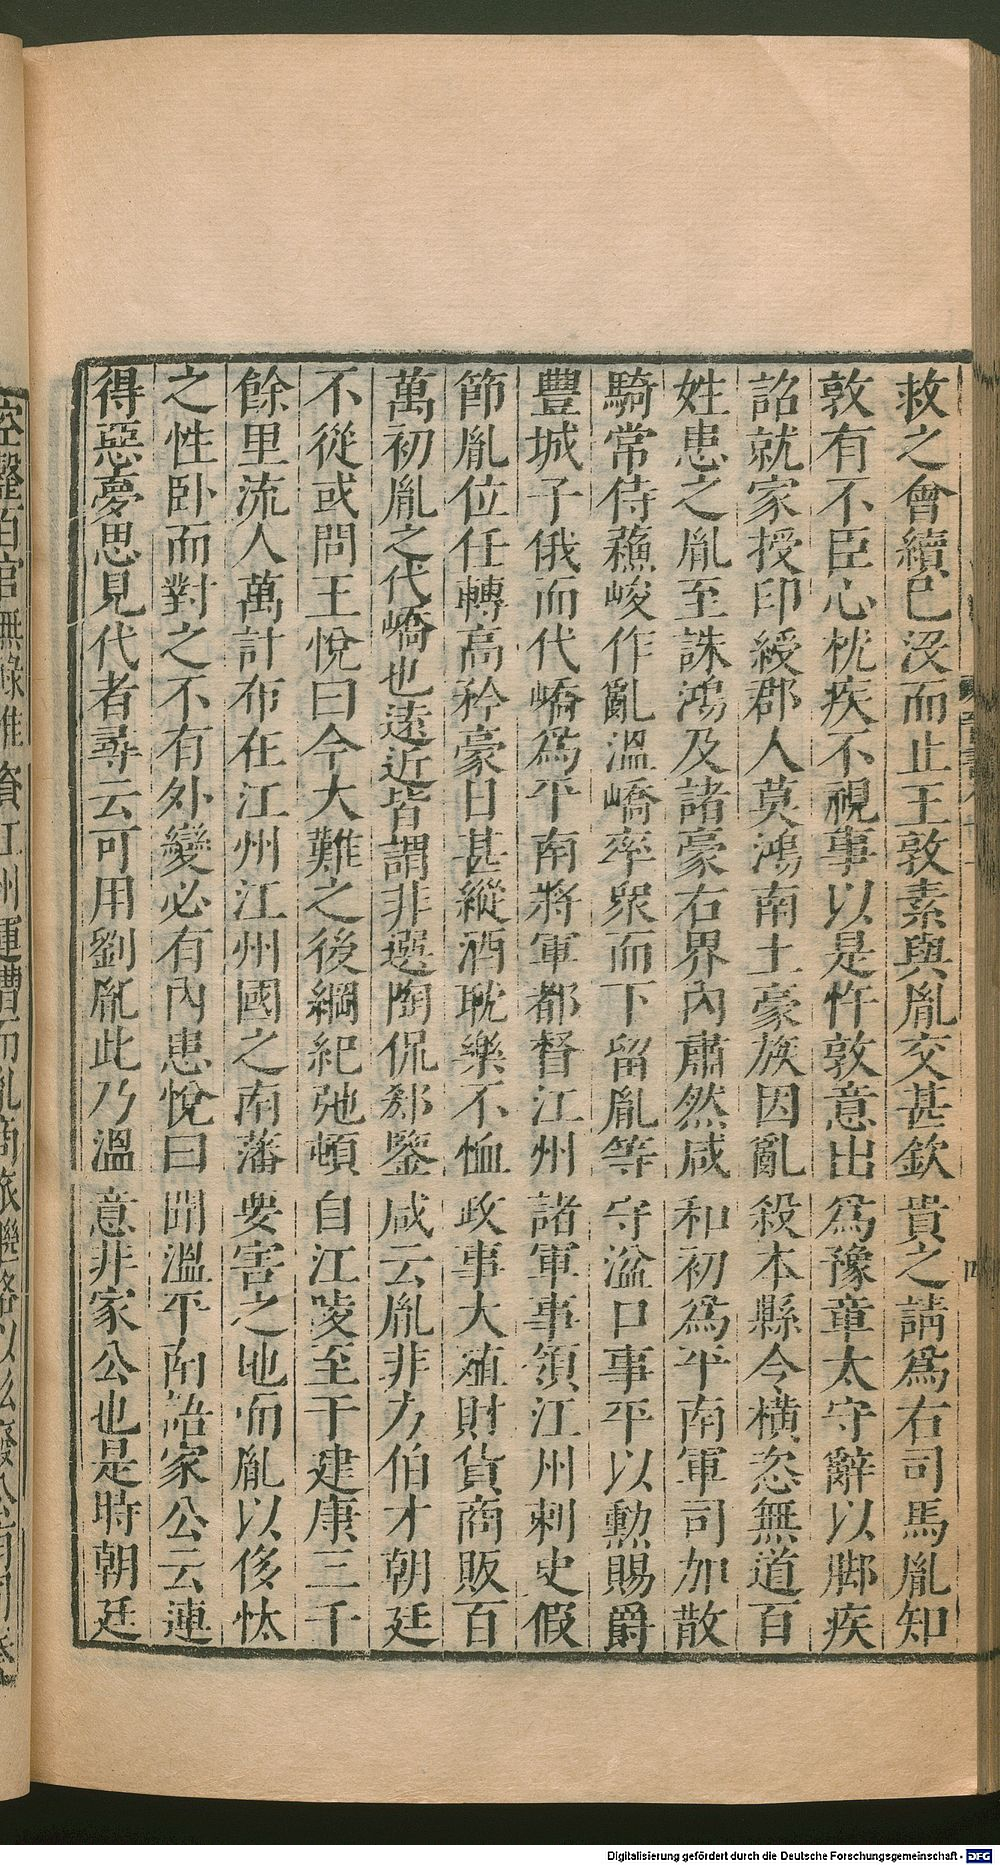 救之會續已沒而止王敦素與胤交甚欽貴之請爲右司馬胤知
敦有不臣心枕疾不視事以是忤敦意出爲豫章太守辭以脚疾
詔就家授印綬郡人莫鴻南土豪族因亂殺本縣令橫恣無道百
姓患之胤至誅鴻及諸豪右界內肅然咸和初爲平南軍司加散
騎常侍蘇峻作亂溫嶠率眾而下留胤等守湓口事平以勳賜爵
豐城子俄而代嶠爲平南將軍都督江州諸軍事領江州刺史假
節胤位任轉高矜豪日甚縱酒耽樂不恤政事大殖財貨商販百
萬初胤之代嶠也遠近皆謂非選陶侃郗鑒咸云胤非方伯才朝廷
不從或問王悅曰今大難之後綱紀弛頓自江陵至于建康三千
餘里流人萬計布在江州江州國之南藩要害之地而胤以侈忲
之性臥而對之不有外變必有內患悅曰聞溫平南語家公云連
得惡夢思見代者尋云可用劉胤此乃溫意非家公也是時朝廷
空罄百官無祿惟資江州運漕而胤商旅繼路以私廢公有司奏
Digitalisierung gefördert durch die Deutsche Forschungsgemeinschaft - DFG